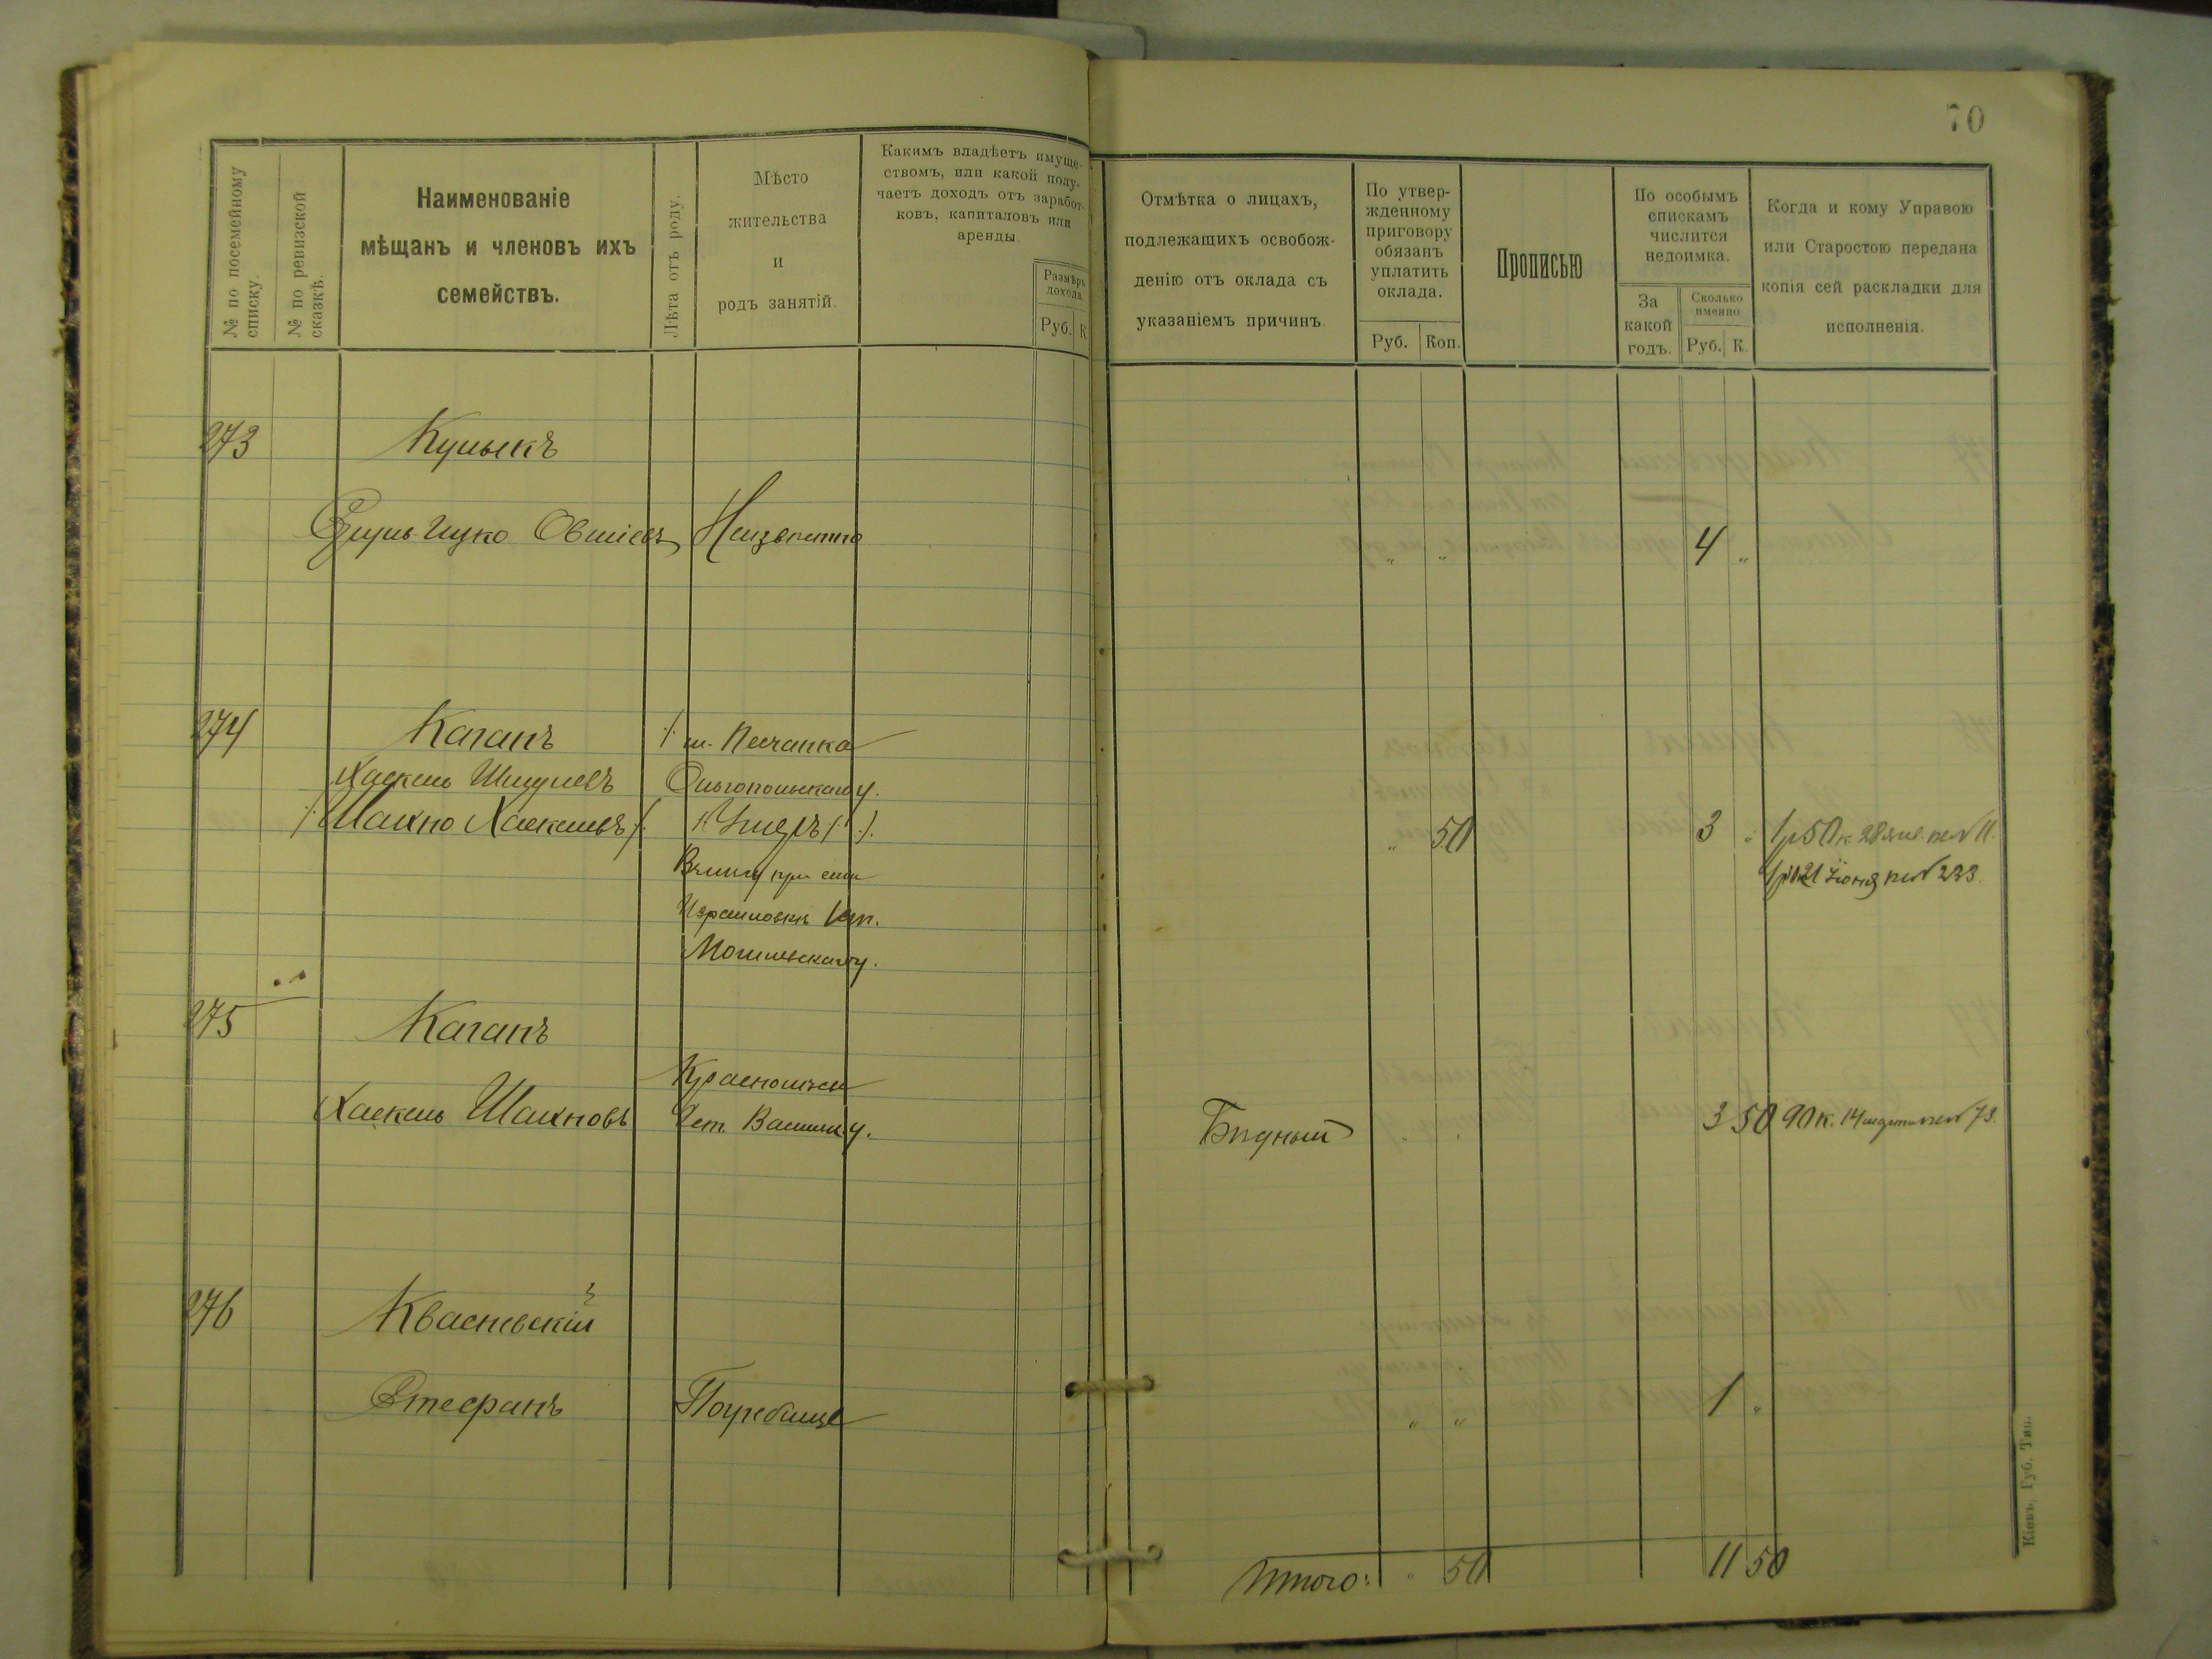 70
№ по посемейному списку.
№ по ревизской сказкѣ.
Наименованіе
мѣщанъ и членовъ ихъ
семействъ.
Лѣта отъ роду.
Мѣсто
жительства
и
родъ занятій.
Какимъ владѣетъ имуще-
ствомъ, или какой полу-
чаетъ доходъ отъ заработ-
ковъ, капиталовъ или
аренды.
Размѣръ
дохода.
Руб. К
Отмѣтка о лицахъ,
подлежащихъ освобож-
денію отъ оклада съ
указаніемъ причинъ.
По утвер-
жденному
приговору
обязанъ
уплатить
оклада.
Руб. Коп.
Прописью
По особымъ
спискамъ
числится
недоимка.
За
какой
годъ.
Сколько
именно
Руб. К.
Когда и кому Управою
или Старостою передана
копія сей раскладки для
исполненія.
273 Кулыкъ
Ицко Овшіевъ Неизвестно „ „ 4 „
274 Каганъ /: м. Песчанка
Хаскель Шмулевъ Ольгопольскаго у.
/: Шахно Хаскелевъ :/ „ 50 3 „ 1р50к 28
1р 21 Іюня 233.
при сели
Могилевскаго у.
275 Каганъ
Хаскель Шахновъ Бѣдный „ „ 3 50 90к. 14 марта 73.
276 Квасневскій
Стефанъ Погребище „ „ 1 „
Итого: „ 50 11 50
Кіевъ, Губ. Тип.